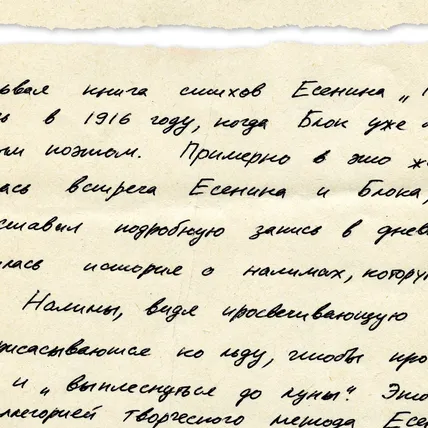 рвая книга стихов Есенина „
ь в 1916 году, когда Блок уже
ым поэтом. Примерно в это ж
лась встреча Есенина и Блока,
ставил подробную запись в днев
лась история о налимах, котору
Налимы, видя просвечивающую
рисасываются ко льду, чтобы про
и „выплеснуться до луны". Это
ллегорией творческого метода Есен